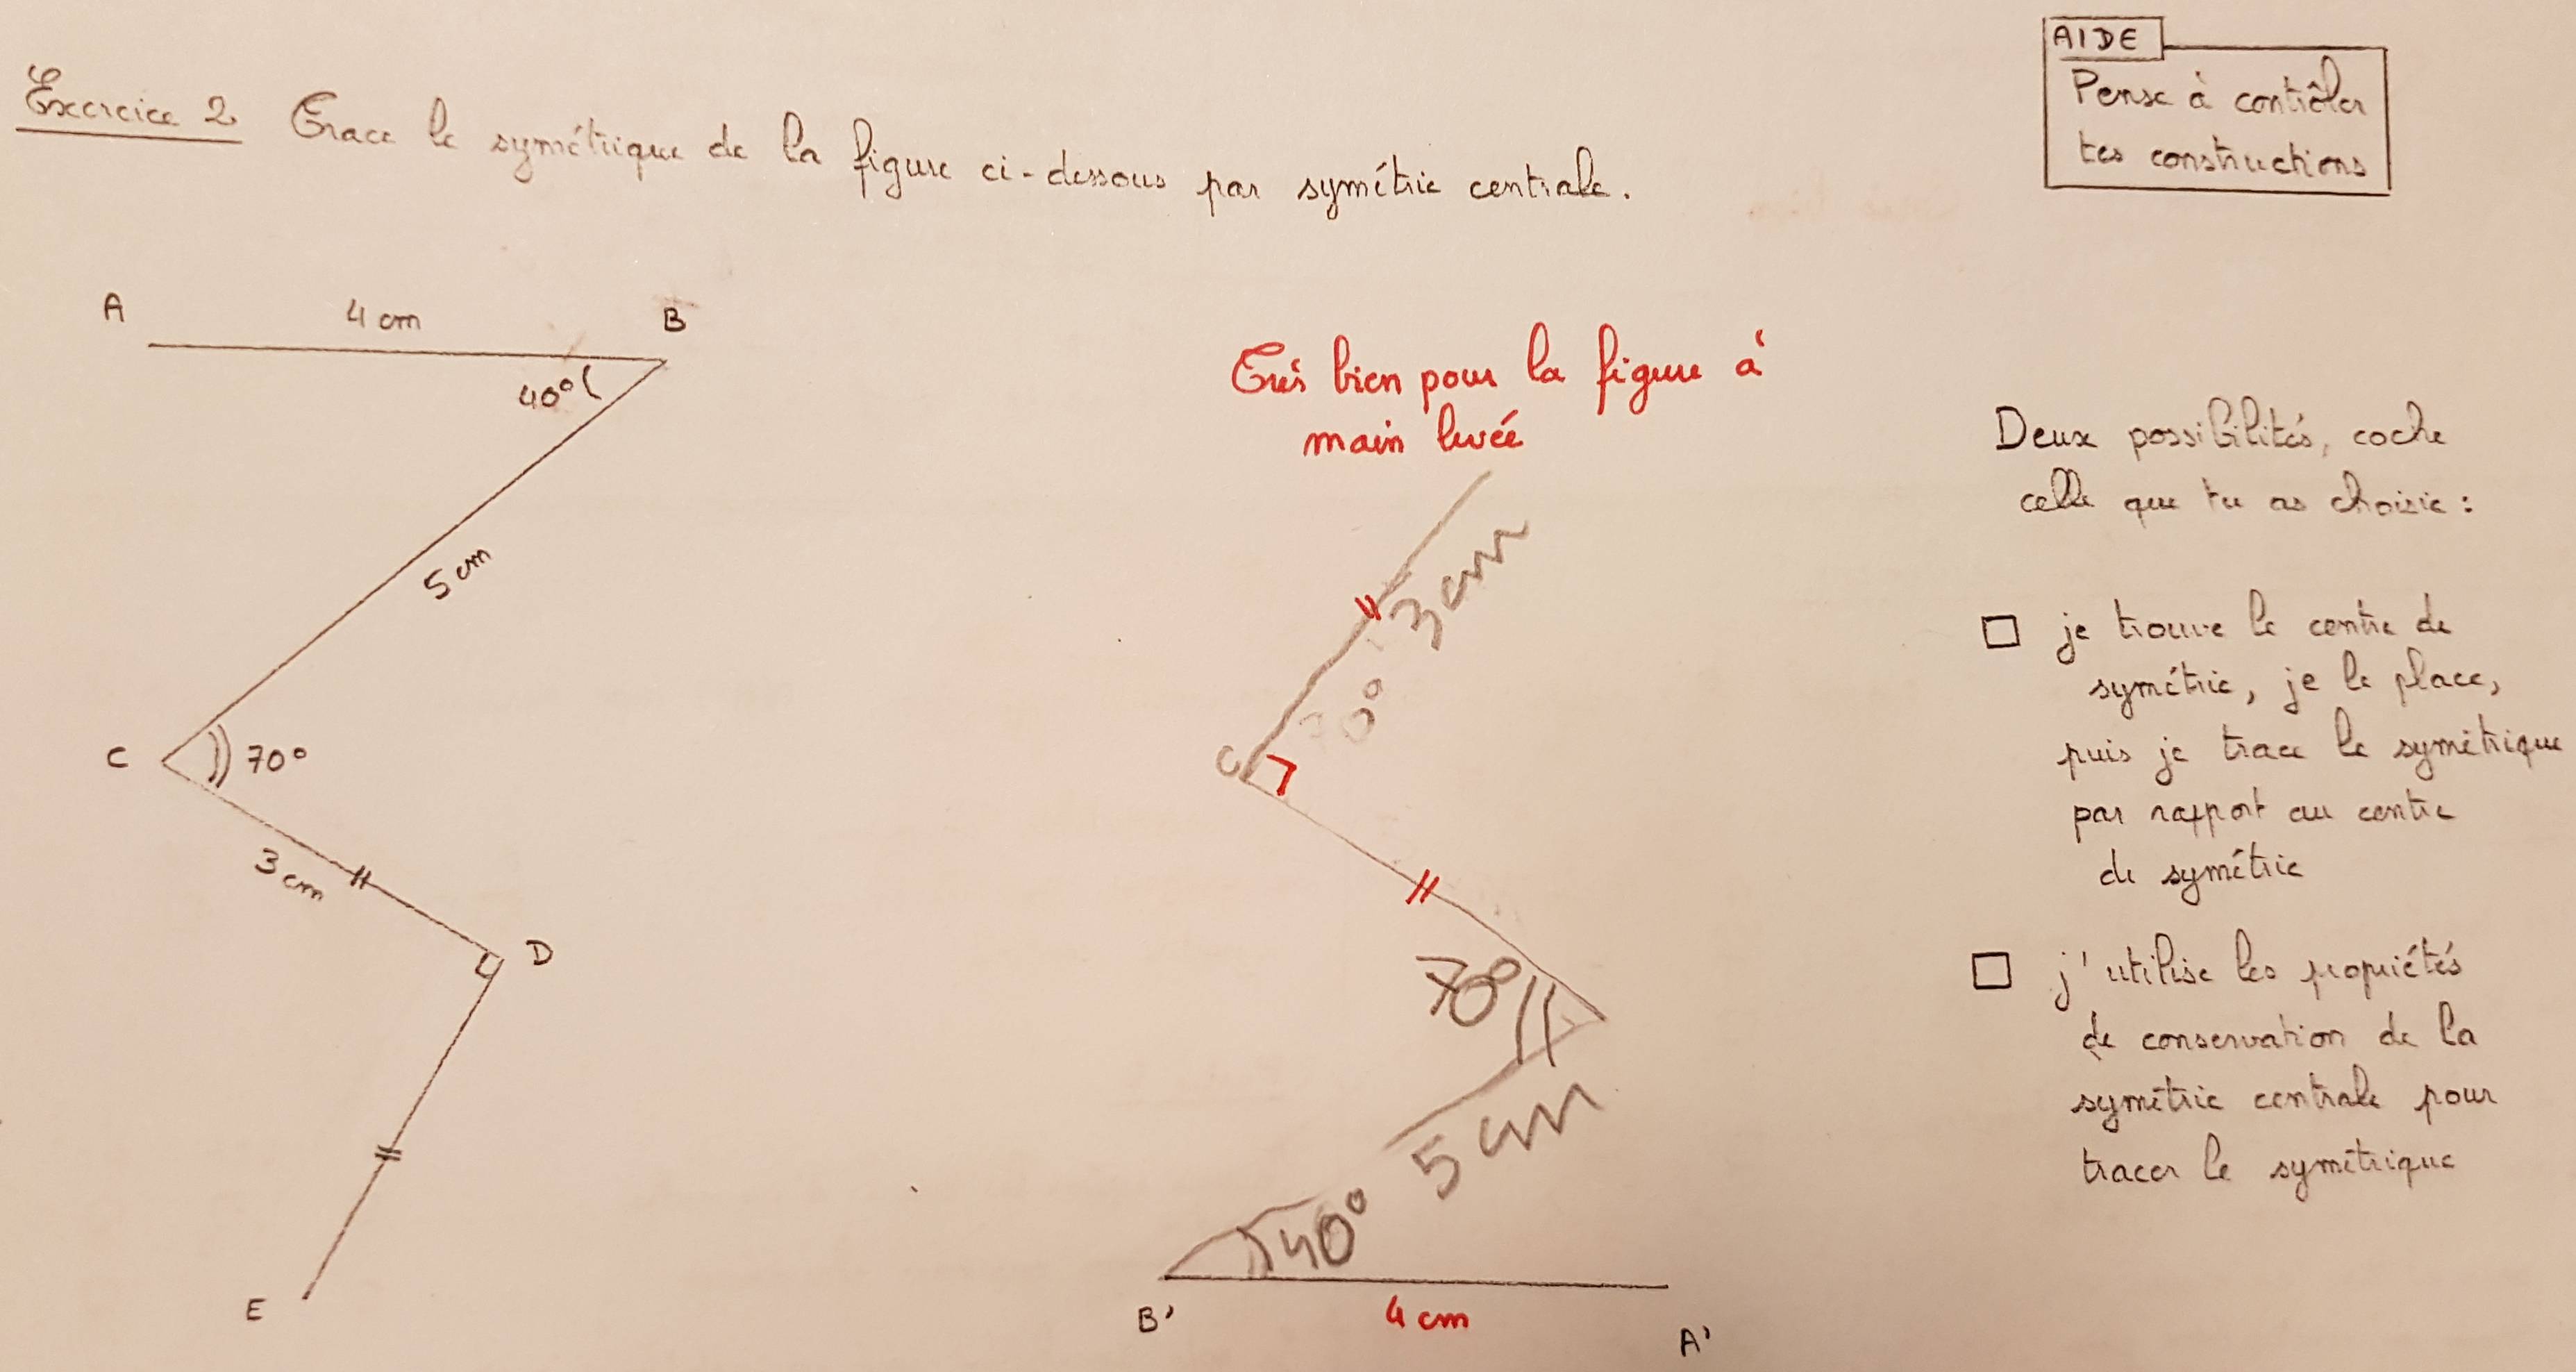 Exercice 2 Trace le symétrique de la figure ci-dessous par symétrie centrale.
AIDE
Pense à contrôler
tes constructions
A
4 cm
B
40°
5 cm
C
70°
3 cm
D
E
Très bien pour la figure à
main levée
3 cm
70°
C
70°
5 cm
40°
B'
4 cm
A'
Deux possibilités, coche
celle que tu as choisie :
je trouve le centre de
symétrie, je le place,
puis je trace le symétrique
par rapport au centre
de symétrie
j'utilise les propriétés
de conservation de la
symétrie centrale pour
tracer le symétrique